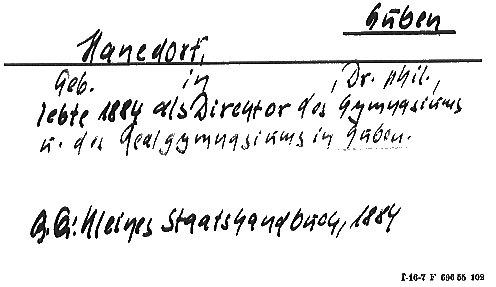 Guben
Hanedorf,
Geb. in , Dr. phil.,
lebte 1884 als Direktor des Gymnasiums
u. des Realgymnasiums in Guben.
Q.Q: Kleines Staatshandbuch, 1884
I-16-7 F 696 55 102